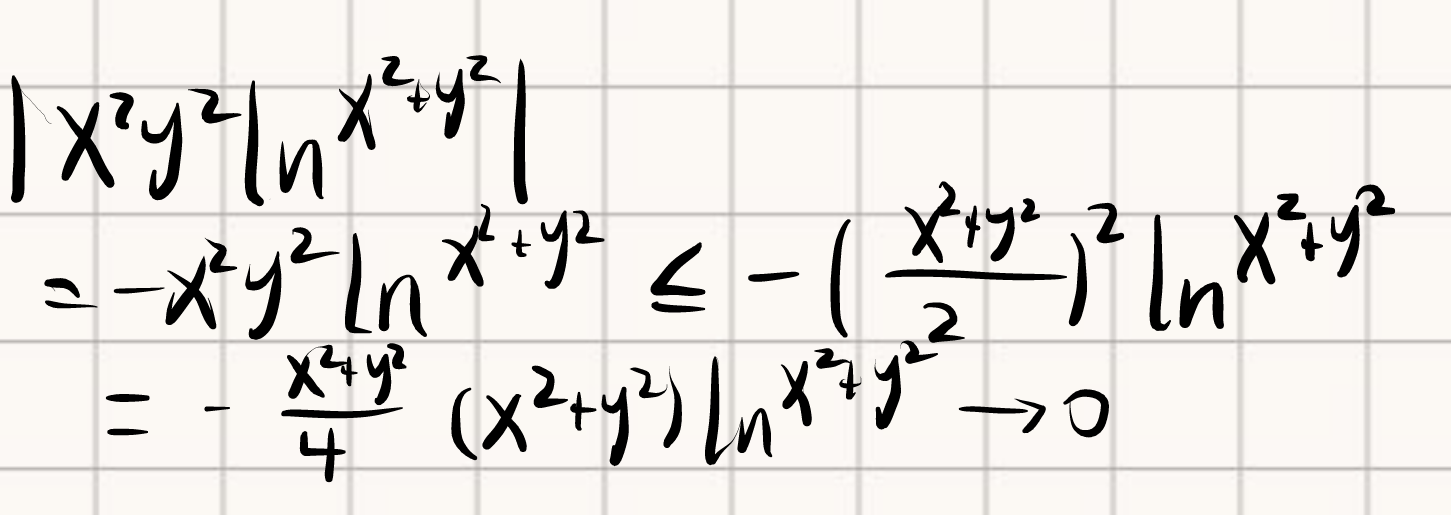 |x²y² ln^{x²+y²}|
= -x²y² ln^{x²+y²} ≤ -(\frac{x²+y²}{2})² ln^{x²+y²}
= -\frac{x²+y²}{4} (x²+y²) ln^{x²+y²} → 0